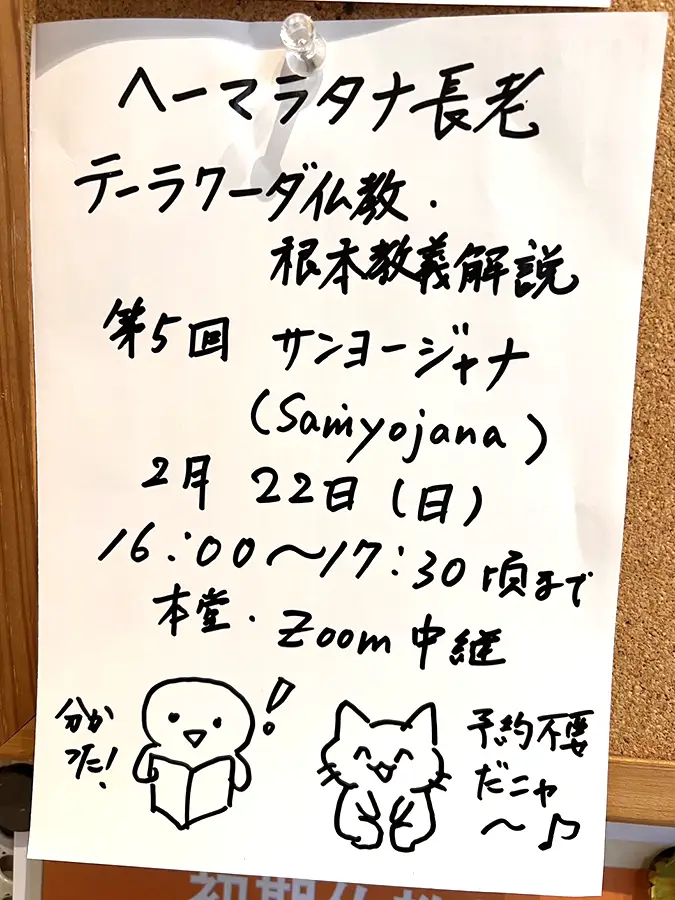 ヘーマラタナ長老
テーラワーダ仏教・
根本教義解説
第5回 サンヨージャナ
(Saṁyojana)
2月 22日(日)
16:00〜17:30頃まで
本堂・Zoom中継
分か
った!
!
予約不要
だニャ
〜♪
初期仏教